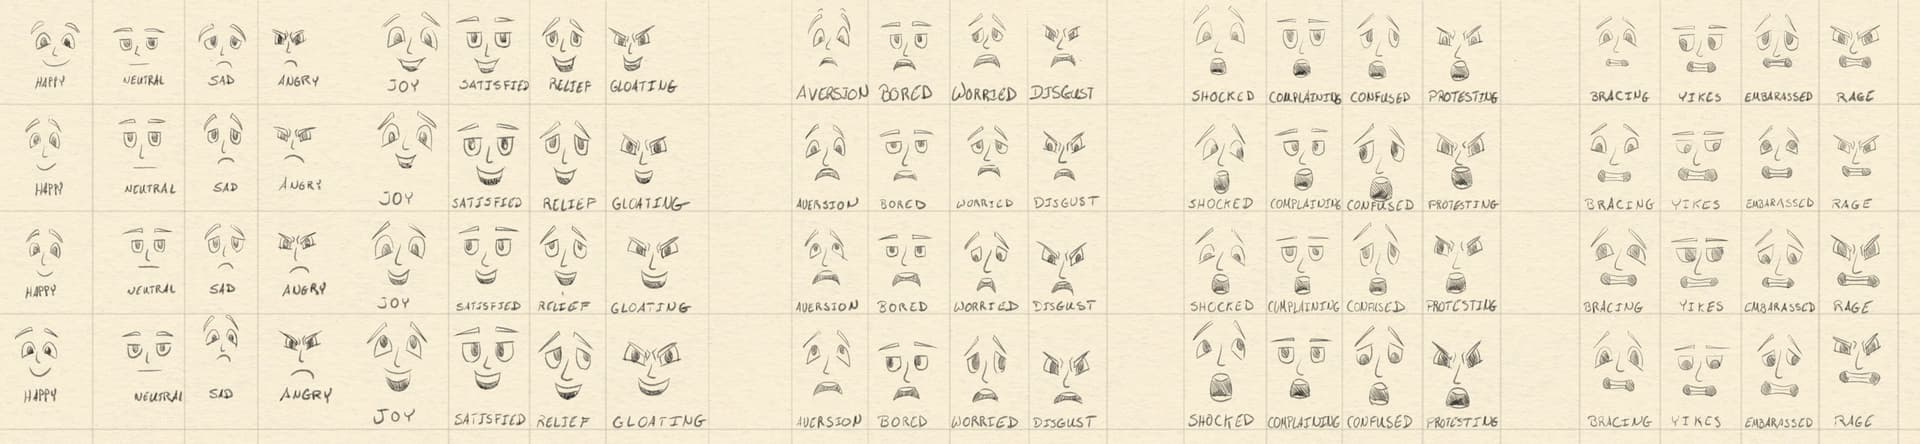 HAPPY NEUTRAL SAD ANGRY JOY SATISFIED RELIEF GLOATING AVERSION BORED WORRIED DISGUST SHOCKED COMPLAINING CONFUSED PROTESTING BRACING YIKES EMBARASSED RAGE
HAPPY NEUTRAL SAD ANGRY JOY SATISFIED RELIEF GLOATING AVERSION BORED WORRIED DISGUST SHOCKED COMPLAINING CONFUSED PROTESTING BRACING YIKES EMBARASSED RAGE
HAPPY NEUTRAL SAD ANGRY JOY SATISFIED RELIEF GLOATING AVERSION BORED WORRIED DISGUST SHOCKED COMPLAINING CONFUSED PROTESTING BRACING YIKES EMBARASSED RAGE
HAPPY NEUTRAL SAD ANGRY JOY SATISFIED RELIEF GLOATING AVERSION BORED WORRIED DISGUST SHOCKED COMPLAINING CONFUSED PROTESTING BRACING YIKES EMBARASSED RAGE